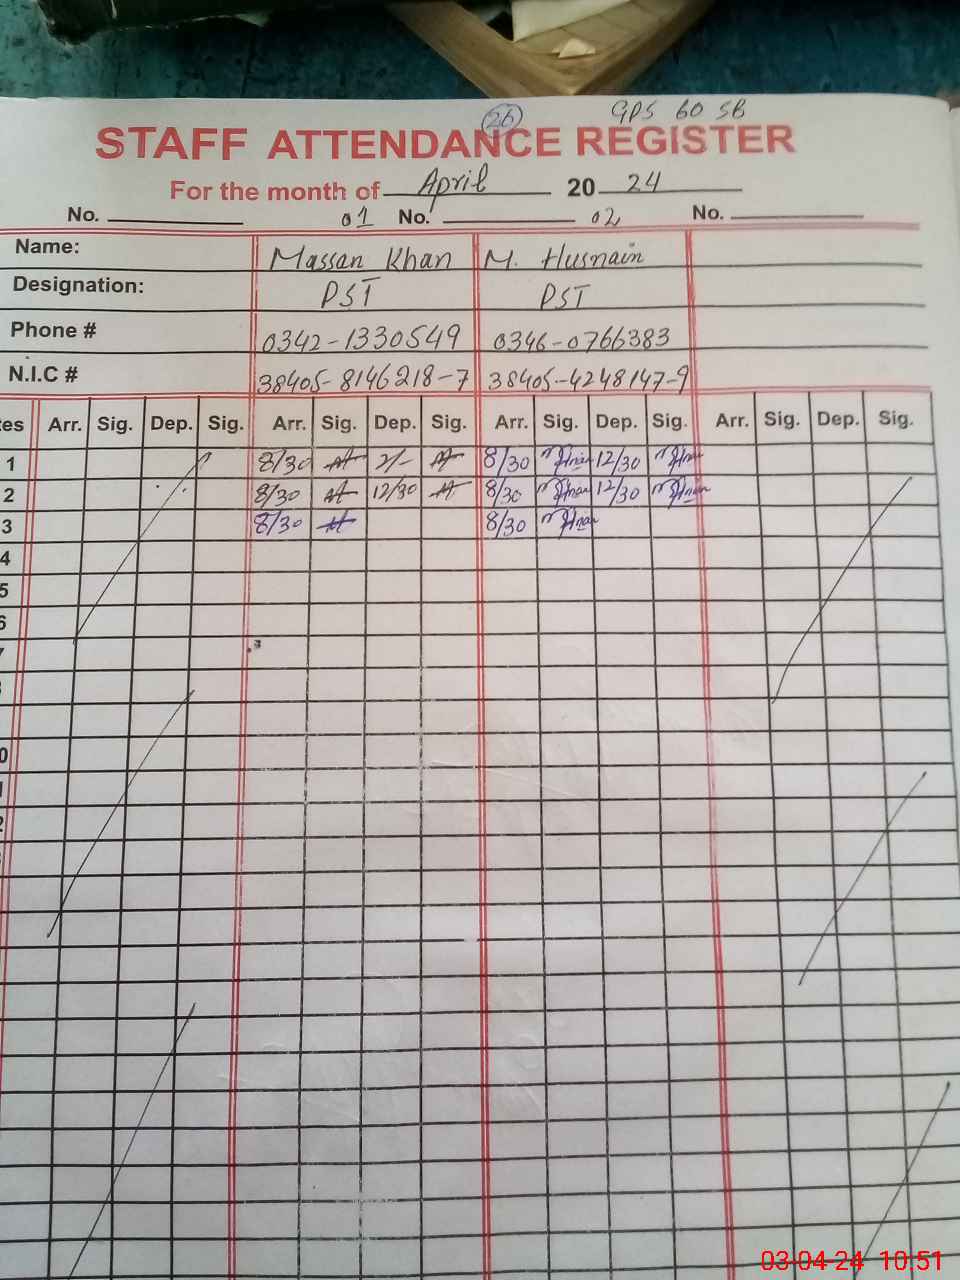 26 GPS 60 SB
STAFF ATTENDANCE REGISTER
For the month of April 20 24
No. 01 No. 02 No.
Name: Massan Khan M. Husnain
Designation: PST PST
Phone # 0342-1330549 0346-0766383
N.I.C # 38405-8146218-7 38405-4248147-9
tes Arr. Sig. Dep. Sig. Arr. Sig. Dep. Sig. Arr. Sig. Dep. Sig. Arr. Sig. Dep. Sig.
1 8/30 2/- 8/30 12/30
2 8/30 12/30 8/30 12/30
3 8/30 8/30
4
5
6
7
0
1
2
03-04-24 10:51